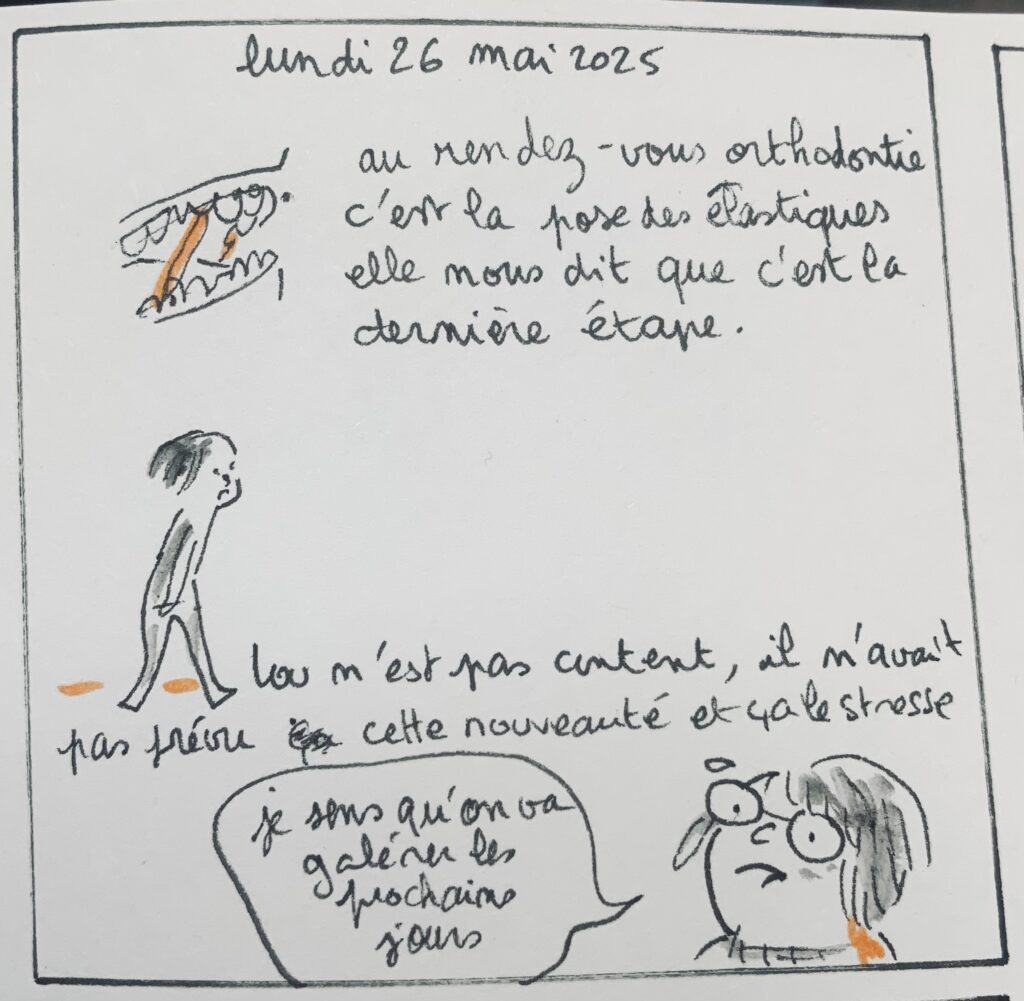 lundi 26 mai 2025
au rendez-vous orthodontie
c'est la pose des élastiques
elle nous dit que c'est la
dernière étape.
lou n'est pas content, il n'avait
pas prévu cette nouveauté et ça le stresse
je sens qu'on va
galérer les
prochains
jours